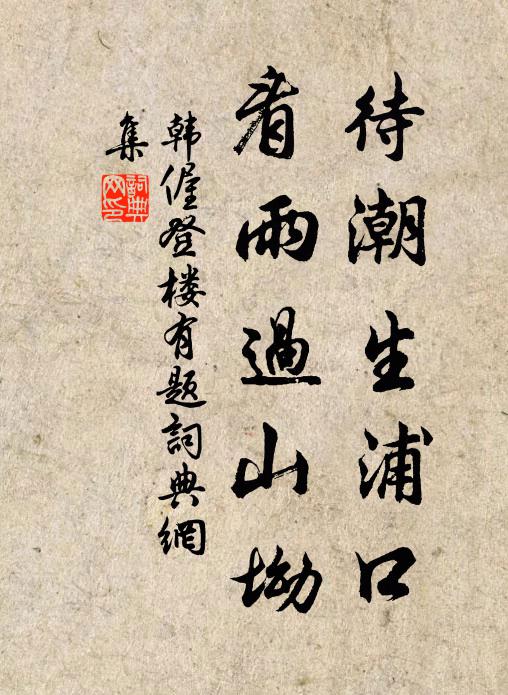 待潮生浦口
看雨過山坳
韩偓登楼有题詞典網
集
詞典網印